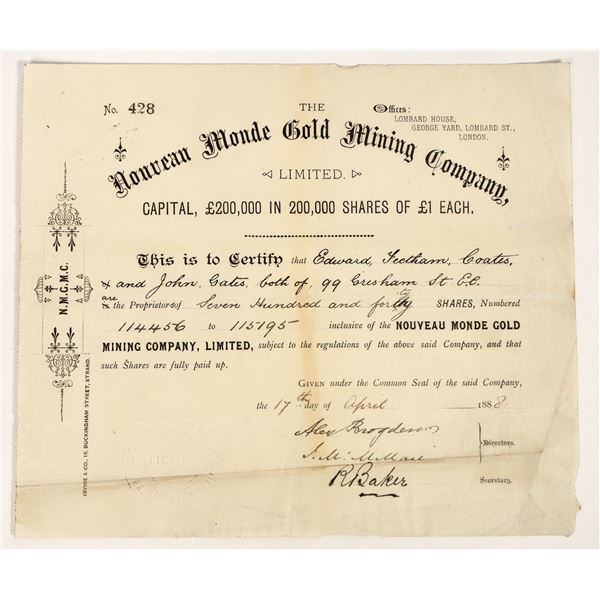 No. 428
THE
Offices:
LOMBARD HOUSE,
GEORGE YARD, LOMBARD ST.,
LONDON.
Nouveau Monde Gold Mining Company,
LIMITED.
CAPITAL, £200,000 IN 200,000 SHARES OF £1 EACH.
This is to Certify that Edward, Feetham, Coates,
and John, Cates, both of, 99 Gresham St E.C.
are the Proprietors of Seven Hundred and forty SHARES, Numbered
114456 to 115195 inclusive of the NOUVEAU MONDE GOLD
MINING COMPANY, LIMITED, subject to the regulations of the above said Company, and that
such Shares are fully paid up.
GIVEN under the Common Seal of the said Company,
the 17th day of April 1888.
Alex Brogden
Directors.
R Baker
Secretary.
N.M.G.M.C.
LIMITED